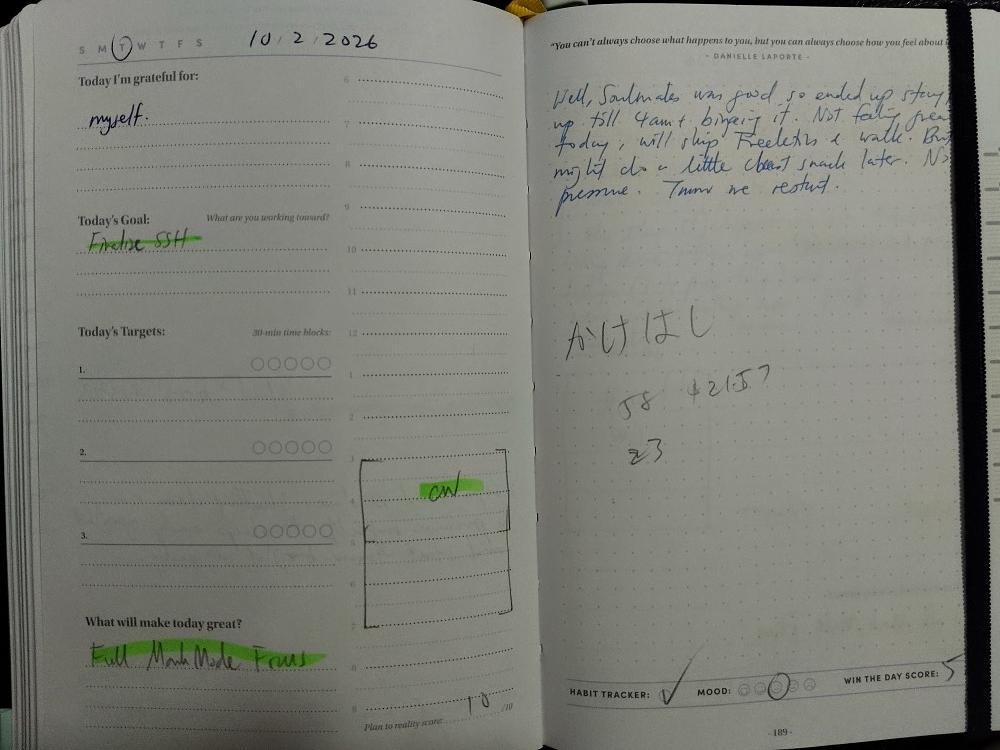 S M T W T F S 10/2/2026
Today I'm grateful for:
myself.
Today's Goal: What are you working toward?
Finalize SSH
Today's Targets: 30-min time blocks:
1.
2.
3.
What will make today great?
Full Monk Mode Focus
6
7
8
9
10
11
12
1
2
3
4
CW
5
6
7
8
9
10
Plan to reality score: /10
"You can't always choose what happens to you, but you can always choose how you feel about
- DANIELLE LAPORTE -
Well, Soulmates was good so ended up stay
up till 4am+ bingeing it. Not feeling
today, will skip Freeletics & walk. But
might do a little chest snack later. No
pressure. Tmrw we restart.
かけはし
58 $21.57
23
HABIT TRACKER: ✓ MOOD: WIN THE DAY SCORE: 5
- 189 -